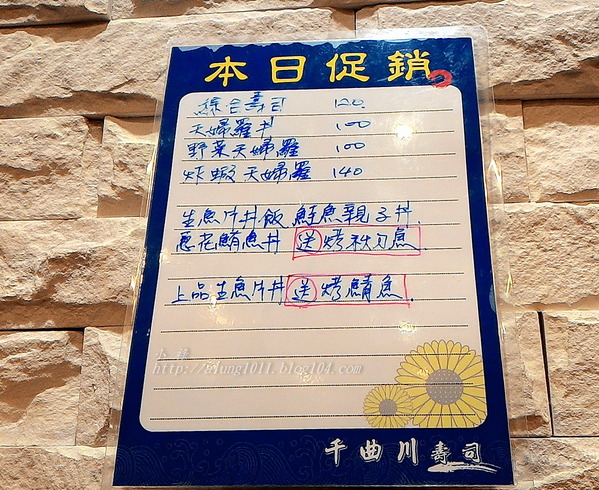 本日促銷
綜合壽司 120
天婦羅丼 100
野菜天婦羅 100
炸蝦天婦羅 140
生魚片丼飯 鮭魚親子丼.
蔥花鮪魚丼 送烤秋刀魚.
上品生魚片丼 送烤鯖魚.
http://njung1011.blog104.com
千曲川壽司